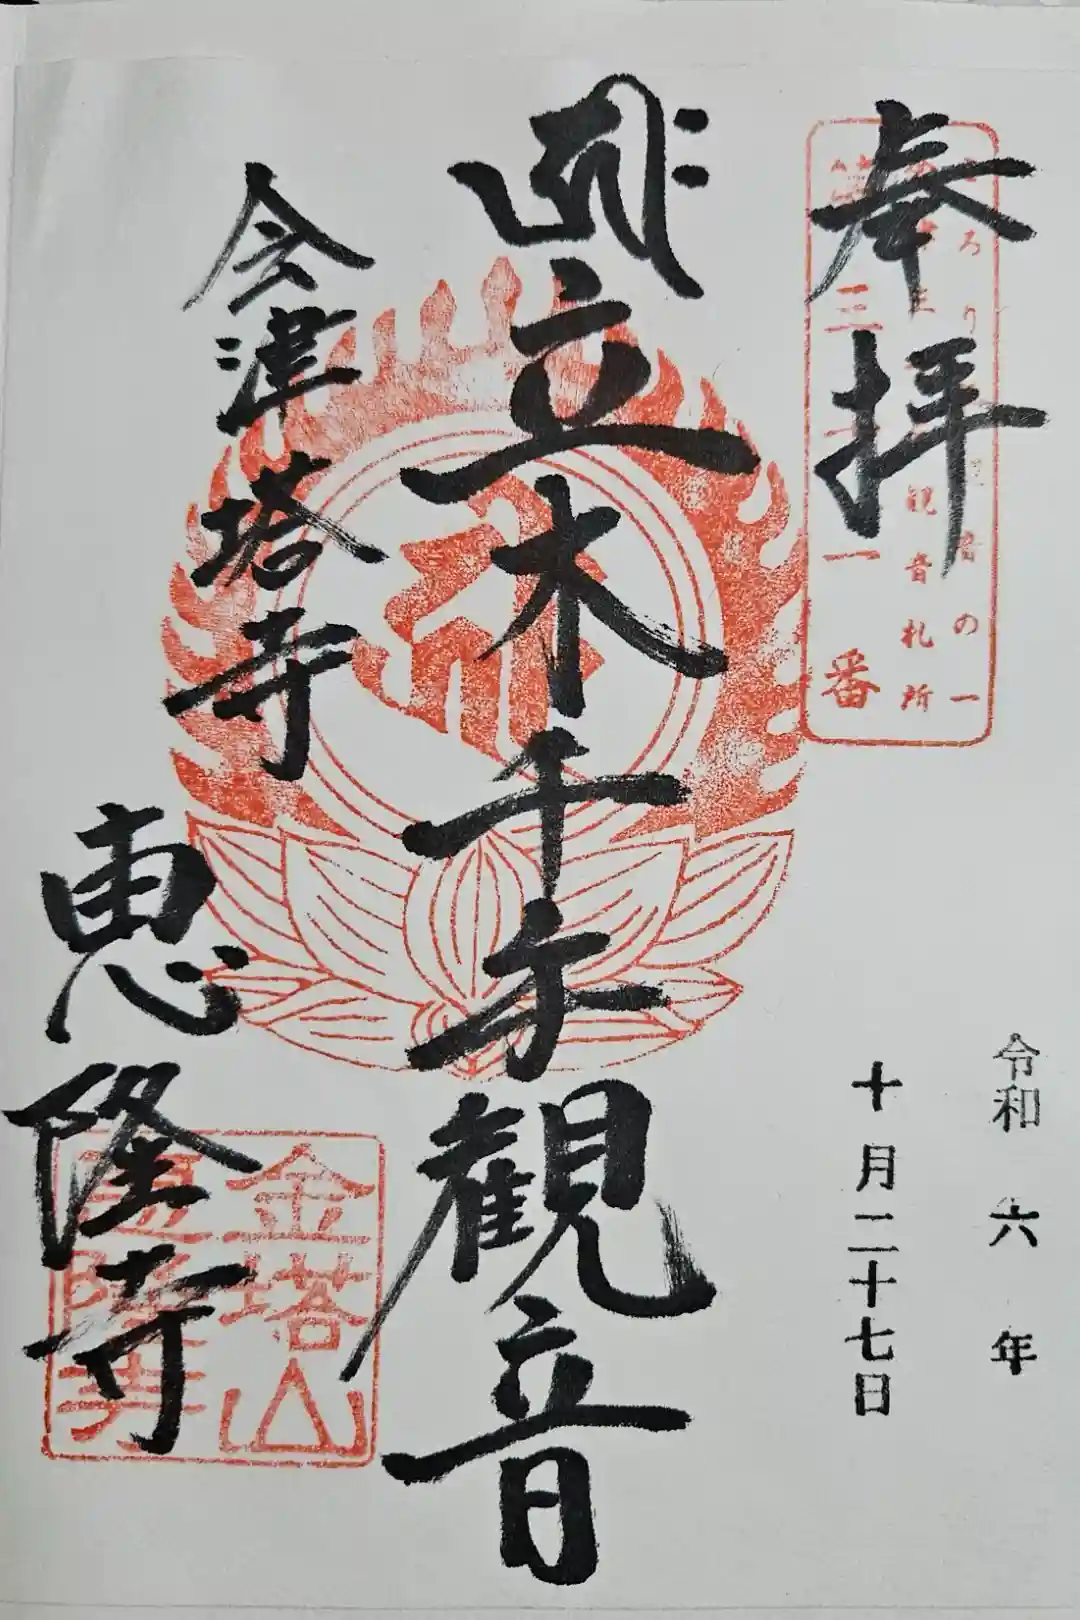 奉拝
ころり
観音の一
観音札所
第三十一番
令和六年
十月二十七日
立木千手観音
会津塔寺
恵隆寺
金塔山
恵隆寺